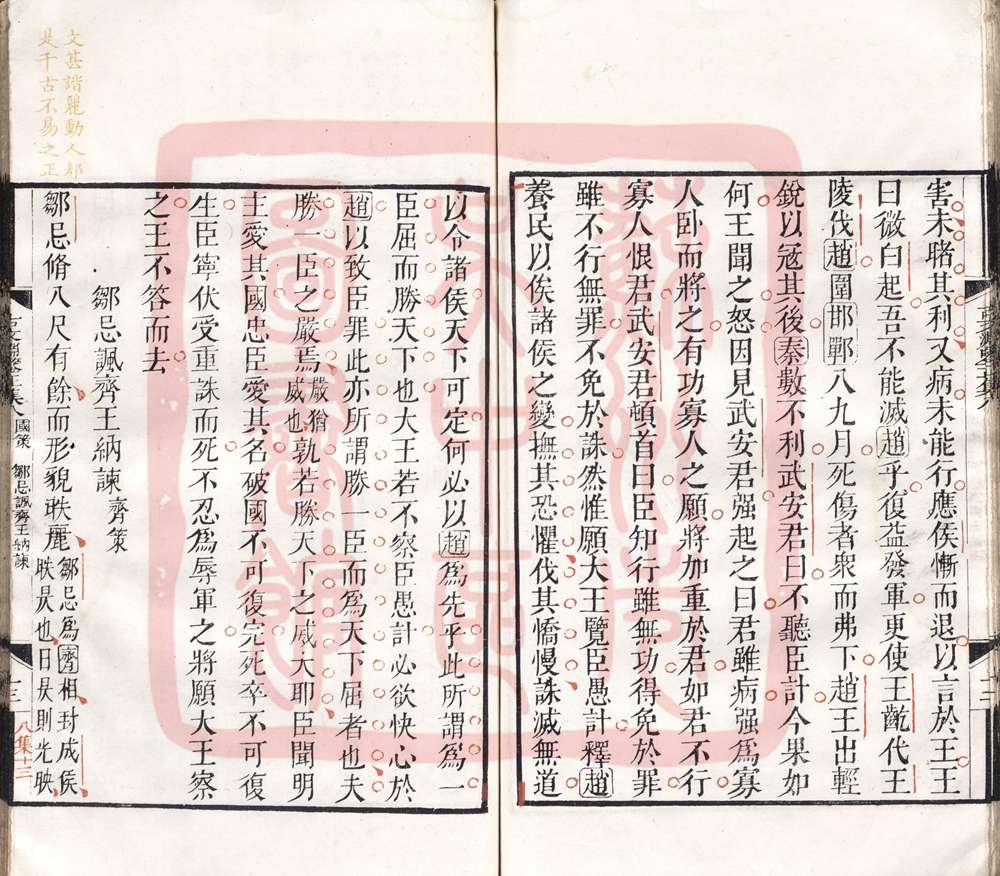 害未睹其利又病未能行應侯慚而退以言於王王
曰微白起吾不能滅趙乎復益發軍更使王齕代王
陵伐趙圍邯鄲八九月死傷者衆而弗下趙王出輕
銳以寇其後秦數不利武安君曰不聽臣計今果如
何王聞之怒因見武安君强起之曰君雖病强爲寡
人卧而將之有功寡人之願將加重於君如君不行
寡人恨君武安君頓首曰臣知行雖無功得免於罪
雖不行無罪不免於誅然惟願大王覽臣愚計釋趙
養民以俟諸侯之變撫其恐懼伐其憍慢誅滅無道
以令諸侯天下可定何必以趙爲先乎此所謂爲一
臣屈而勝天下也大王若不察臣愚計必欲快心於
趙以致臣罪此亦所謂勝一臣而爲天下屈者也夫
勝一臣之嚴焉嚴猶威也孰若勝天下之威大耶臣聞明
主愛其國忠臣愛其名破國不可復完死卒不可復
生臣寧伏受重誅而死不忍爲辱軍之將願大王察
之王不答而去
鄒忌諷齊王納諫 齊策
鄒忌脩八尺有餘而形貌昳麗鄒忌爲齊相封成侯昳㫒也日㫒則光映
國策 鄒忌諷齊王納諫
十三
八集十三
文甚諧麗動人却
是千古不易之正